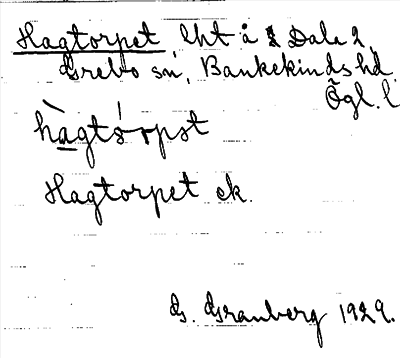 Hagtorpet lht å Dala 2,
Grebo sn, Bankekinds hd.
Ögl. l.
hàgtórpst
Hagtorpet ek.
G. Granberg 1929.